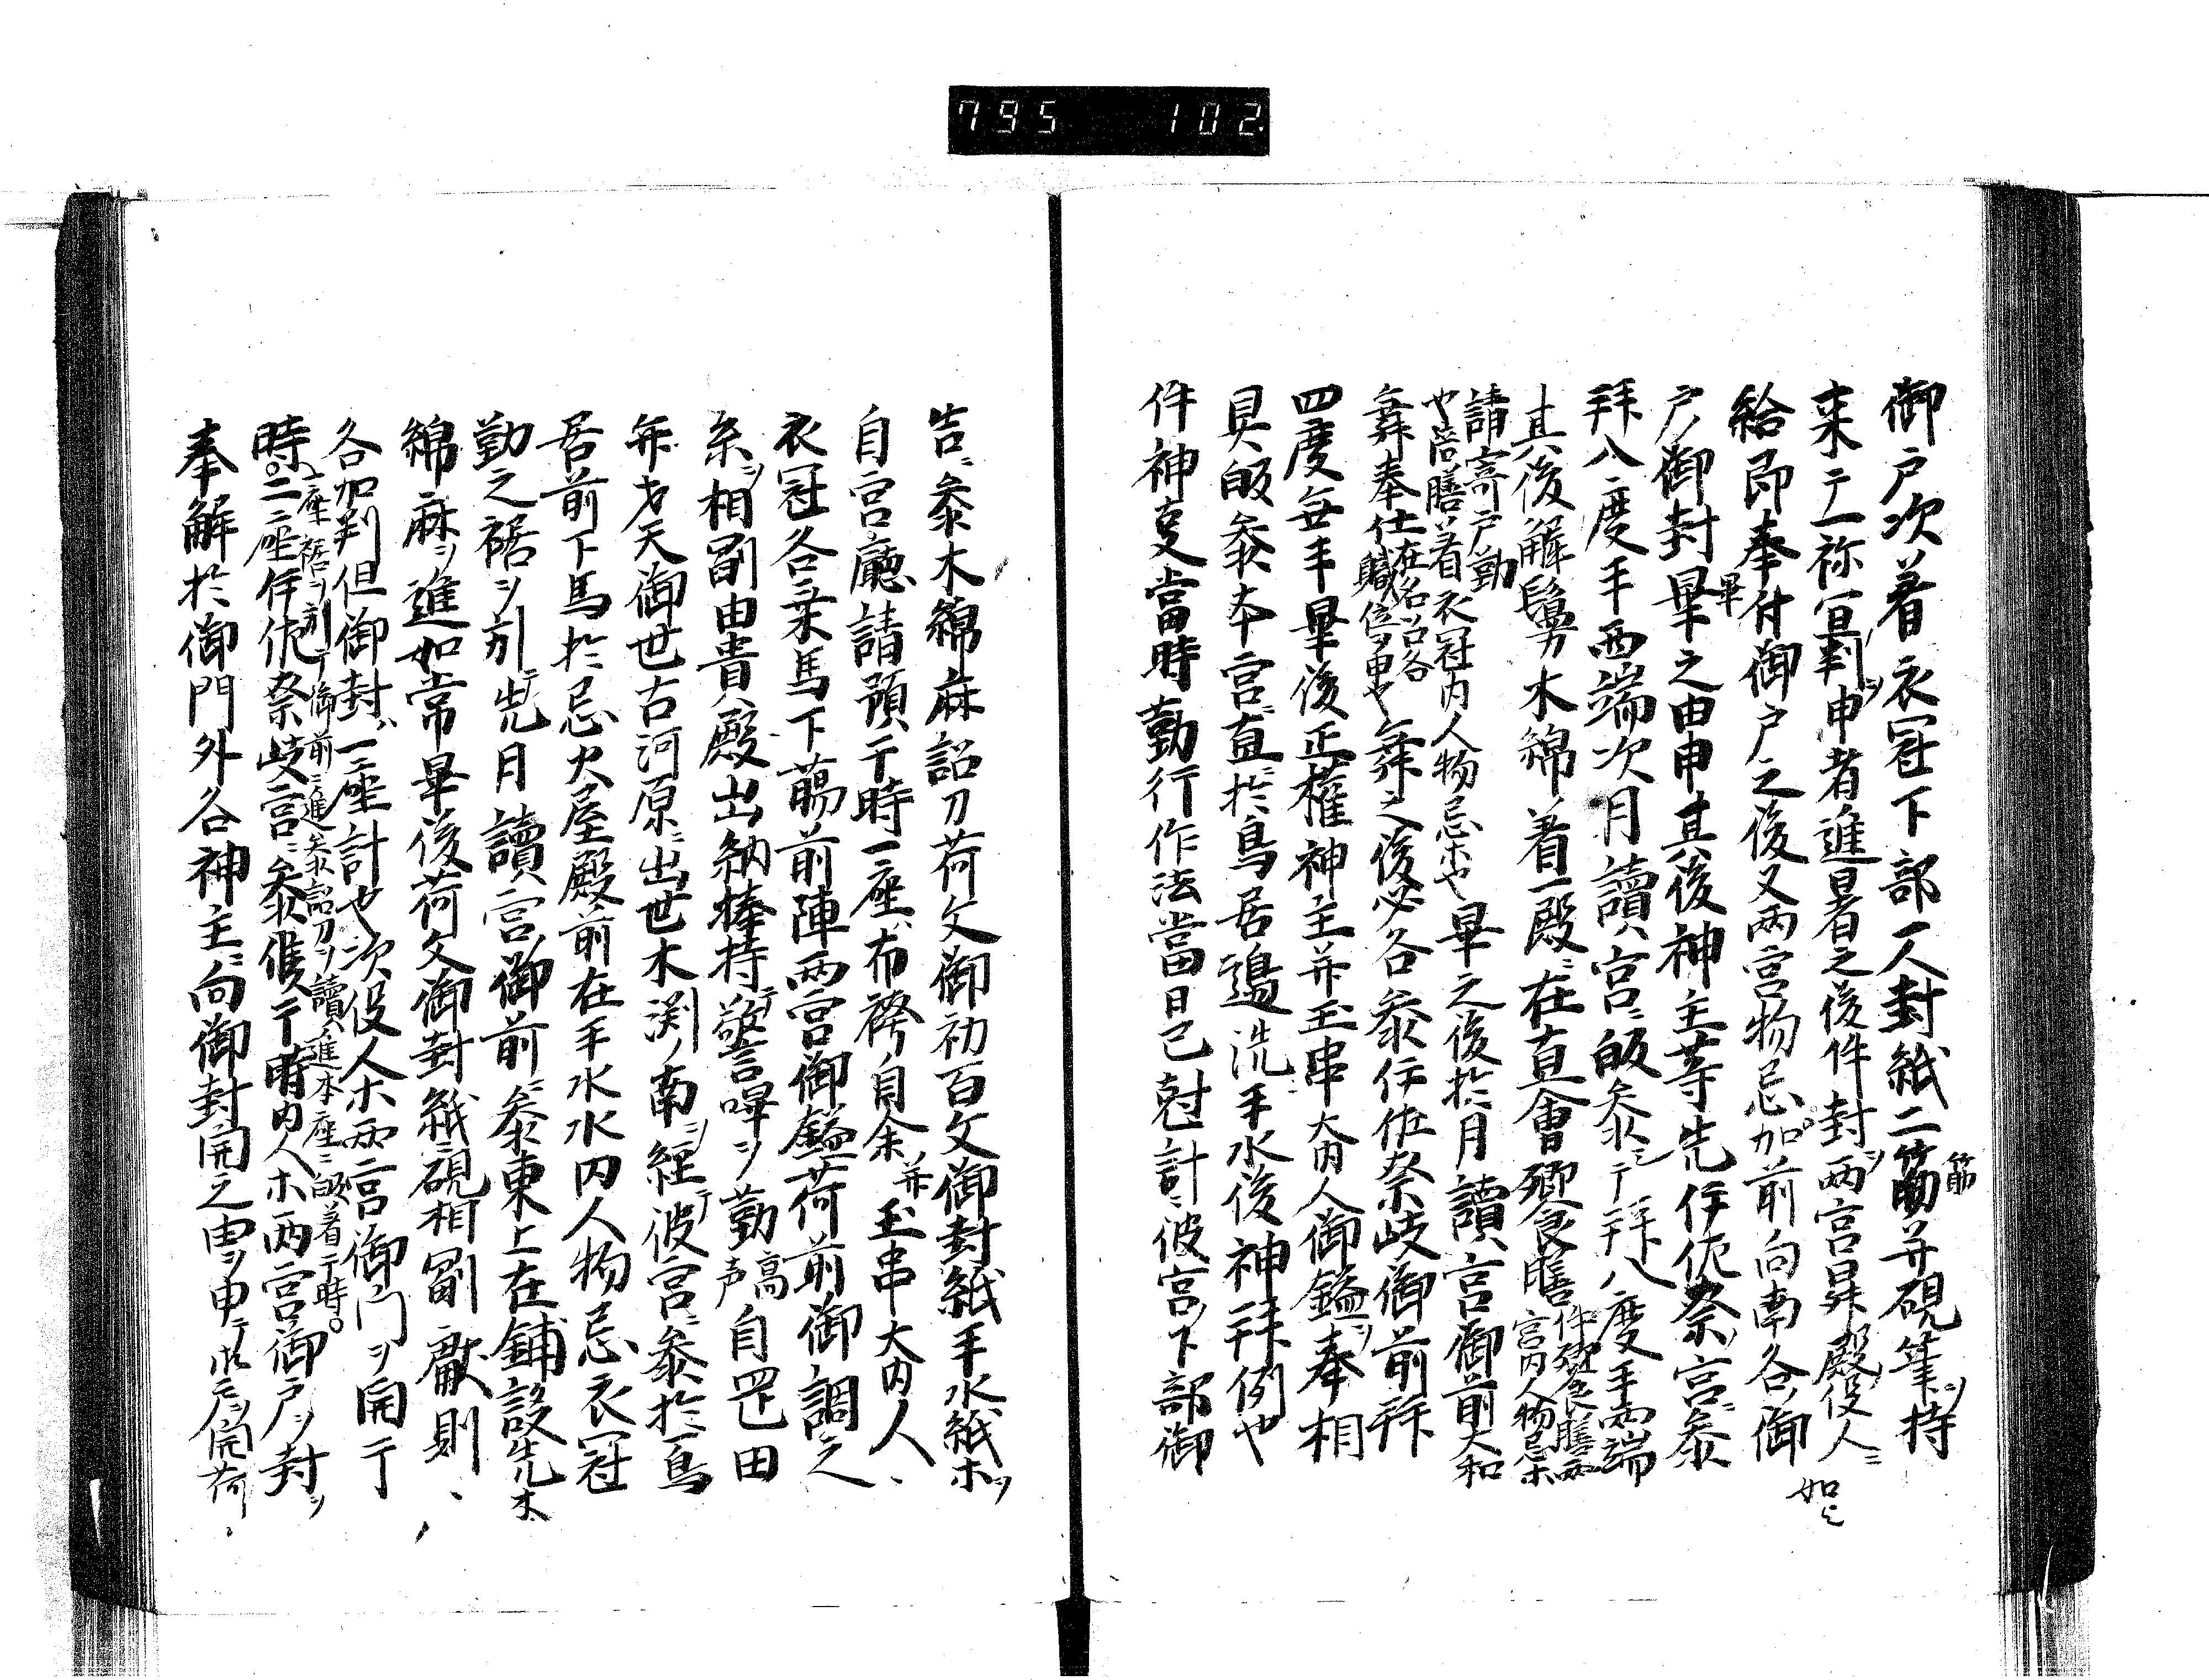 795 102.
御戸次着衣冠下部一人封紙二筋并硯筆ヲ持
筋
来テ一祢宜判ヲ申者進署之後件封ヲ両宮昇殿役人ニ
給即奉付御戸之後又両宮物忌加前向南各御
如之
戸ノ御封畢之由申其後神主等先伊佐奈ノ宮ニ参
畢
拝八度手両端次月讀宮ニ皈参シテ拝八度手両端
其後解鬘木綿着一殿ニ在直會饗膳件饗膳両
宮内人物忌ホ
請寄戸勤
也倍膳着衣冠内人物忌ホ也畢之後於月讀宮御前大和
舞奉仕在名召各
職位ヲ申也舞之後必各参伊佐奈岐御前拝
四度無手畢後正權神主并玉串大内人御鎰ヲ奉相
具皈参本宮ニ直ニ於鳥居邊洗手水後神拝例也
件神事當時勤行作法當日已尅計ニ彼宮ノ下部御
告ニ参木綿麻詔刀荷文御初百文御封紙手水紙ホヲ
自宮廳請預テ時一座ハ布袴自余并玉串大内人ハ
衣冠各乗馬下﨟前陣両宮御鎰荷前御調之
糸ヲ相副由貴殿出納捧持テ警嗶ヲ勤高
声自罡田
弁才天御世古河原ニ出世木渕ノ南ヲ経テ彼宮ニ参於鳥
居前下馬於忌火屋殿前在手水水内人物忌衣冠
勤之裾ヲ引テ先月讀宮御前ニ参東上在鋪設先木
綿麻ヲ進如常畢後荷文御封紙ニ硯相副獻則
各加判但御封ハ一座計也次役人ホ両宮御門ヲ開テ
一座裾ヲ引テ御前ニ進参詔刀ヲ讀進本座ニ皈着テ時
時二座伊佐奈岐宮ニ参候テ時内人ホ両宮御戸ヲ封ヲ
奉解於御門外各神主ニ向御封開之由ヲ申テ御戸ヲ開荷